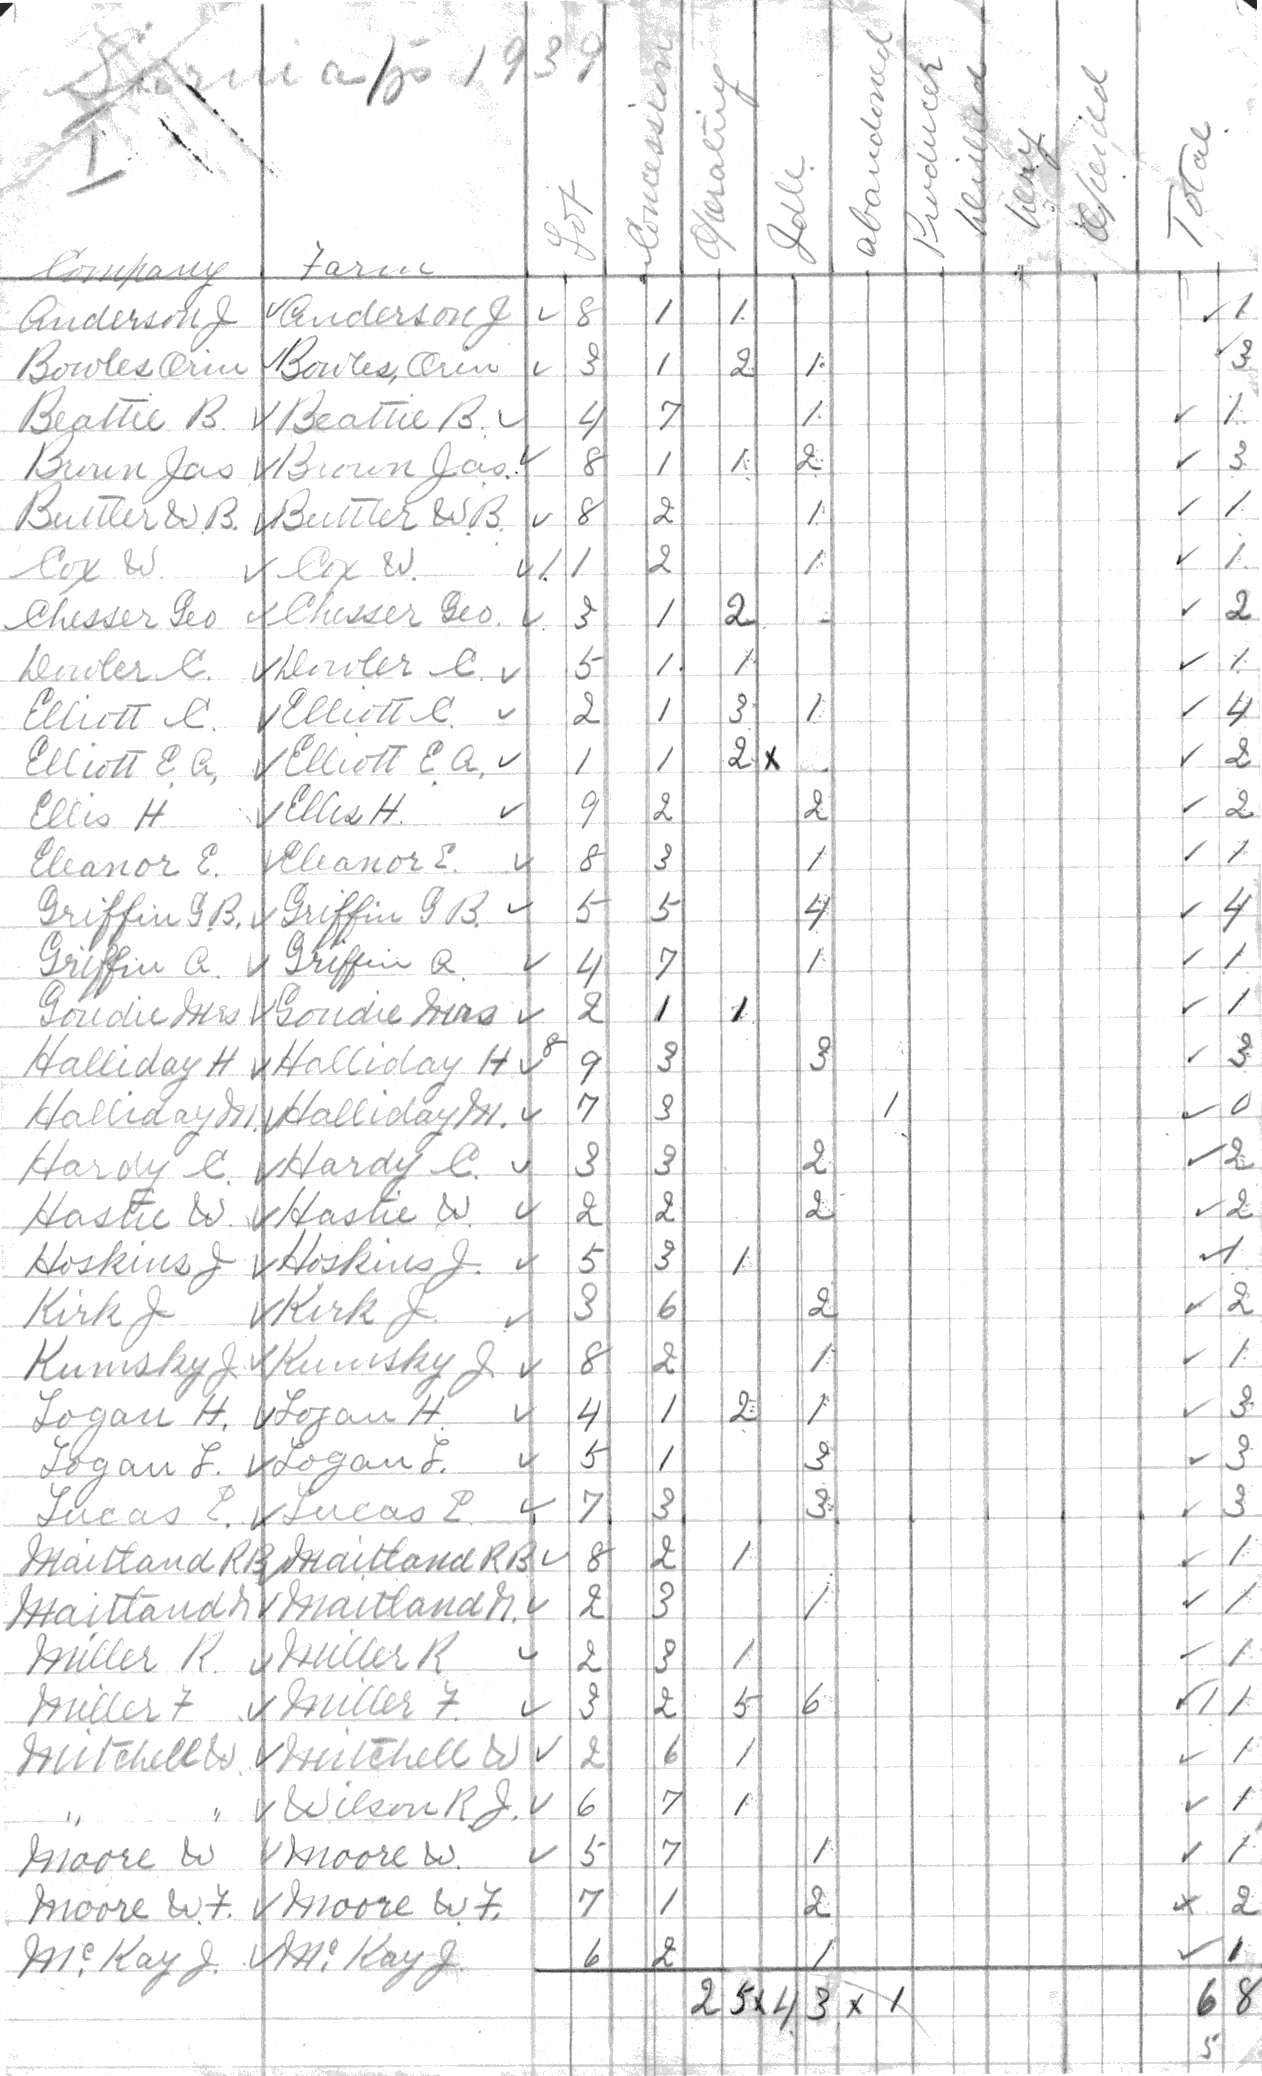 Sarnia Tp 1939
I
Company Farm Lot Concession Operating Idle abandoned Producer drilled New Total
Anderson J ✓ Anderson J ✓ 8 1 1 ✓ 1
Bowles, Orin ✓ Bowles, Orin ✓ 3 1 2 1 ✓ 3
Beattie B. ✓ Beattie B. ✓ 4 7 1 ✓ 1
Brown Jas ✓ Brown Jas. ✓ 8 1 1 2 ✓ 3
Buttler W. B. ✓ Buttler W. B. ✓ 8 2 1 ✓ 1
Cox W. ✓ Cox W. ✓ 1 2 1 ✓ 1
Chesser Geo ✓ Chesser Geo. ✓ 3 1 2 ✓ 2
Dowler C. ✓ Dowler C. ✓ 5 1 1 ✓ 1
Elliott C. ✓ Elliott C. ✓ 2 1 3 1 ✓ 4
Elliott E. A. ✓ Elliott E. A. ✓ 1 1 2 x ✓ 2
Ellis H ✓ Ellis H. ✓ 9 2 2 ✓ 2
Eleanor E. ✓ Eleanor E. ✓ 8 3 1 ✓ 1
Griffin G. B. ✓ Griffin G B. ✓ 5 5 4 ✓ 4
Griffin A. ✓ Griffin A. ✓ 4 7 1 ✓ 1
Goudie Mrs ✓ Goudie Mrs ✓ 2 1 1 ✓ 1
Halliday H ✓ Halliday H ✓ 8 9 3 3 ✓ 3
Halliday M. ✓ Halliday M. ✓ 7 3 1 ✓ 0
Hardy C. ✓ Hardy C. ✓ 3 3 2 ✓ 2
Hastie W. ✓ Hastie W. ✓ 2 2 2 ✓ 2
Hoskins J ✓ Hoskins J. ✓ 5 3 1 ✓ 1
Kirk J ✓ Kirk J. ✓ 3 6 2 ✓ 2
Kumsky J. ✓ Kumsky J ✓ 8 2 1 ✓ 1
Logan H. ✓ Logan H. ✓ 4 1 2 1 ✓ 3
Logan L. ✓ Logan L. ✓ 5 1 3 ✓ 3
Lucas E. ✓ Lucas E. ✓ 7 3 3 ✓ 3
Maitland R B ✓ Maitland R B ✓ 8 2 1 ✓ 1
Maitland N ✓ Maitland N. ✓ 2 3 1 ✓ 1
Miller R. ✓ Miller R ✓ 2 3 1 ✓ 1
Miller F ✓ Miller F. ✓ 3 2 5 6 ✓ 11
Mitchell W. ✓ Mitchell W ✓ 2 6 1 ✓ 1
" " ✓ Wilson R. J. ✓ 6 7 1 ✓ 1
Moore W ✓ Moore W. ✓ 5 7 1 ✓ 1
Moore W. F. ✓ Moore W. F. 7 1 2 x 2
Mc Kay J. ✓ Mc Kay J. 6 2 1 ✓ 1
25 x 43 x 1 68
5